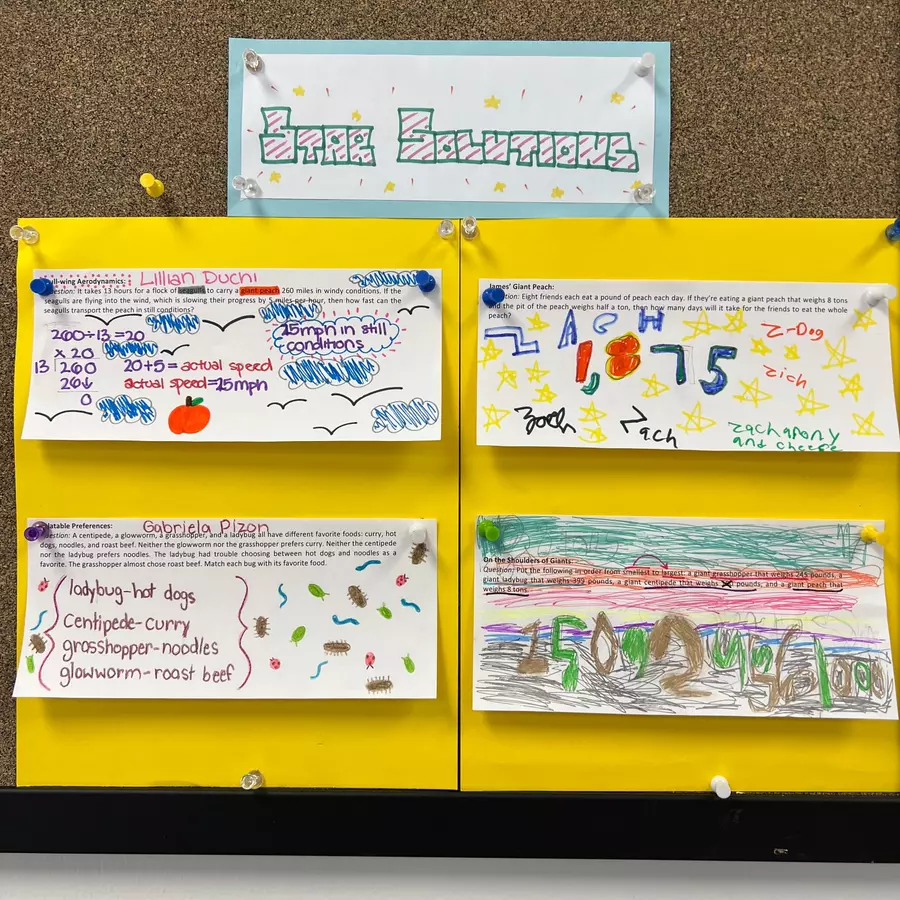 STAR SOLUTIONS
Gull-wing Aerodynamics: Lillian Duchi
Question: It takes 13 hours for a flock of seagulls to carry a giant peach 260 miles in windy conditions. If the
seagulls are flying into the wind, which is slowing their progress by 5 miles per hour, then how fast can the
seagulls transport the peach in still conditions?
260÷13=20
x 20
13 260
26↓
0
20+5= actual speed
actual speed=25mph
25mph in still
conditions
James' Giant Peach:
Question: Eight friends each eat a pound of peach each day. If they're eating a giant peach that weighs 8 tons
and the pit of the peach weighs half a ton, then how many days will it take for the friends to eat the whole
peach?
Z A C H
1,875
Z-Dog
zich
Zach
zachapony
and cheese
Palatable Preferences: Gabriela Pizon
Question: A centipede, a glowworm, a grasshopper, and a ladybug all have different favorite foods: curry, hot
dogs, noodles, and roast beef. Neither the glowworm nor the grasshopper prefers curry. Neither the centipede
nor the ladybug prefers noodles. The ladybug had trouble choosing between hot dogs and noodles as a
favorite. The grasshopper almost chose roast beef. Match each bug with its favorite food.
ladybug-hot dogs
Centipede-curry
grasshopper-noodles
glowworm-roast beef
On the Shoulders of Giants:
Question: Put the following in order from smallest to largest: a giant grasshopper that weighs 245 pounds, a
giant ladybug that weighs 399 pounds, a giant centipede that weighs pounds, and a giant peach that
weighs 8 tons.